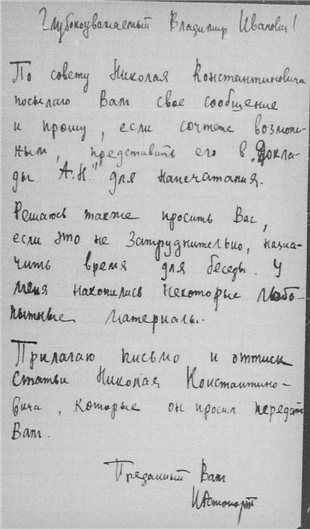 Глубокоуважаемый Владимир Иванович!
По совету Николая Константиновича
посылаю Вам свое сообщение
и прошу, если сочтете возмож-
ным, представить его в „Докла-
ды А.Н." для напечатания.
Решаюсь также просить Вас,
если это не затруднительно, назна-
чить время для беседы. У
меня накопились некоторые любо-
пытные материалы.
Прилагаю письмо и оттиск
статьи Николая Константино-
вича, которые он просил передать
Вам.
Преданный Вам